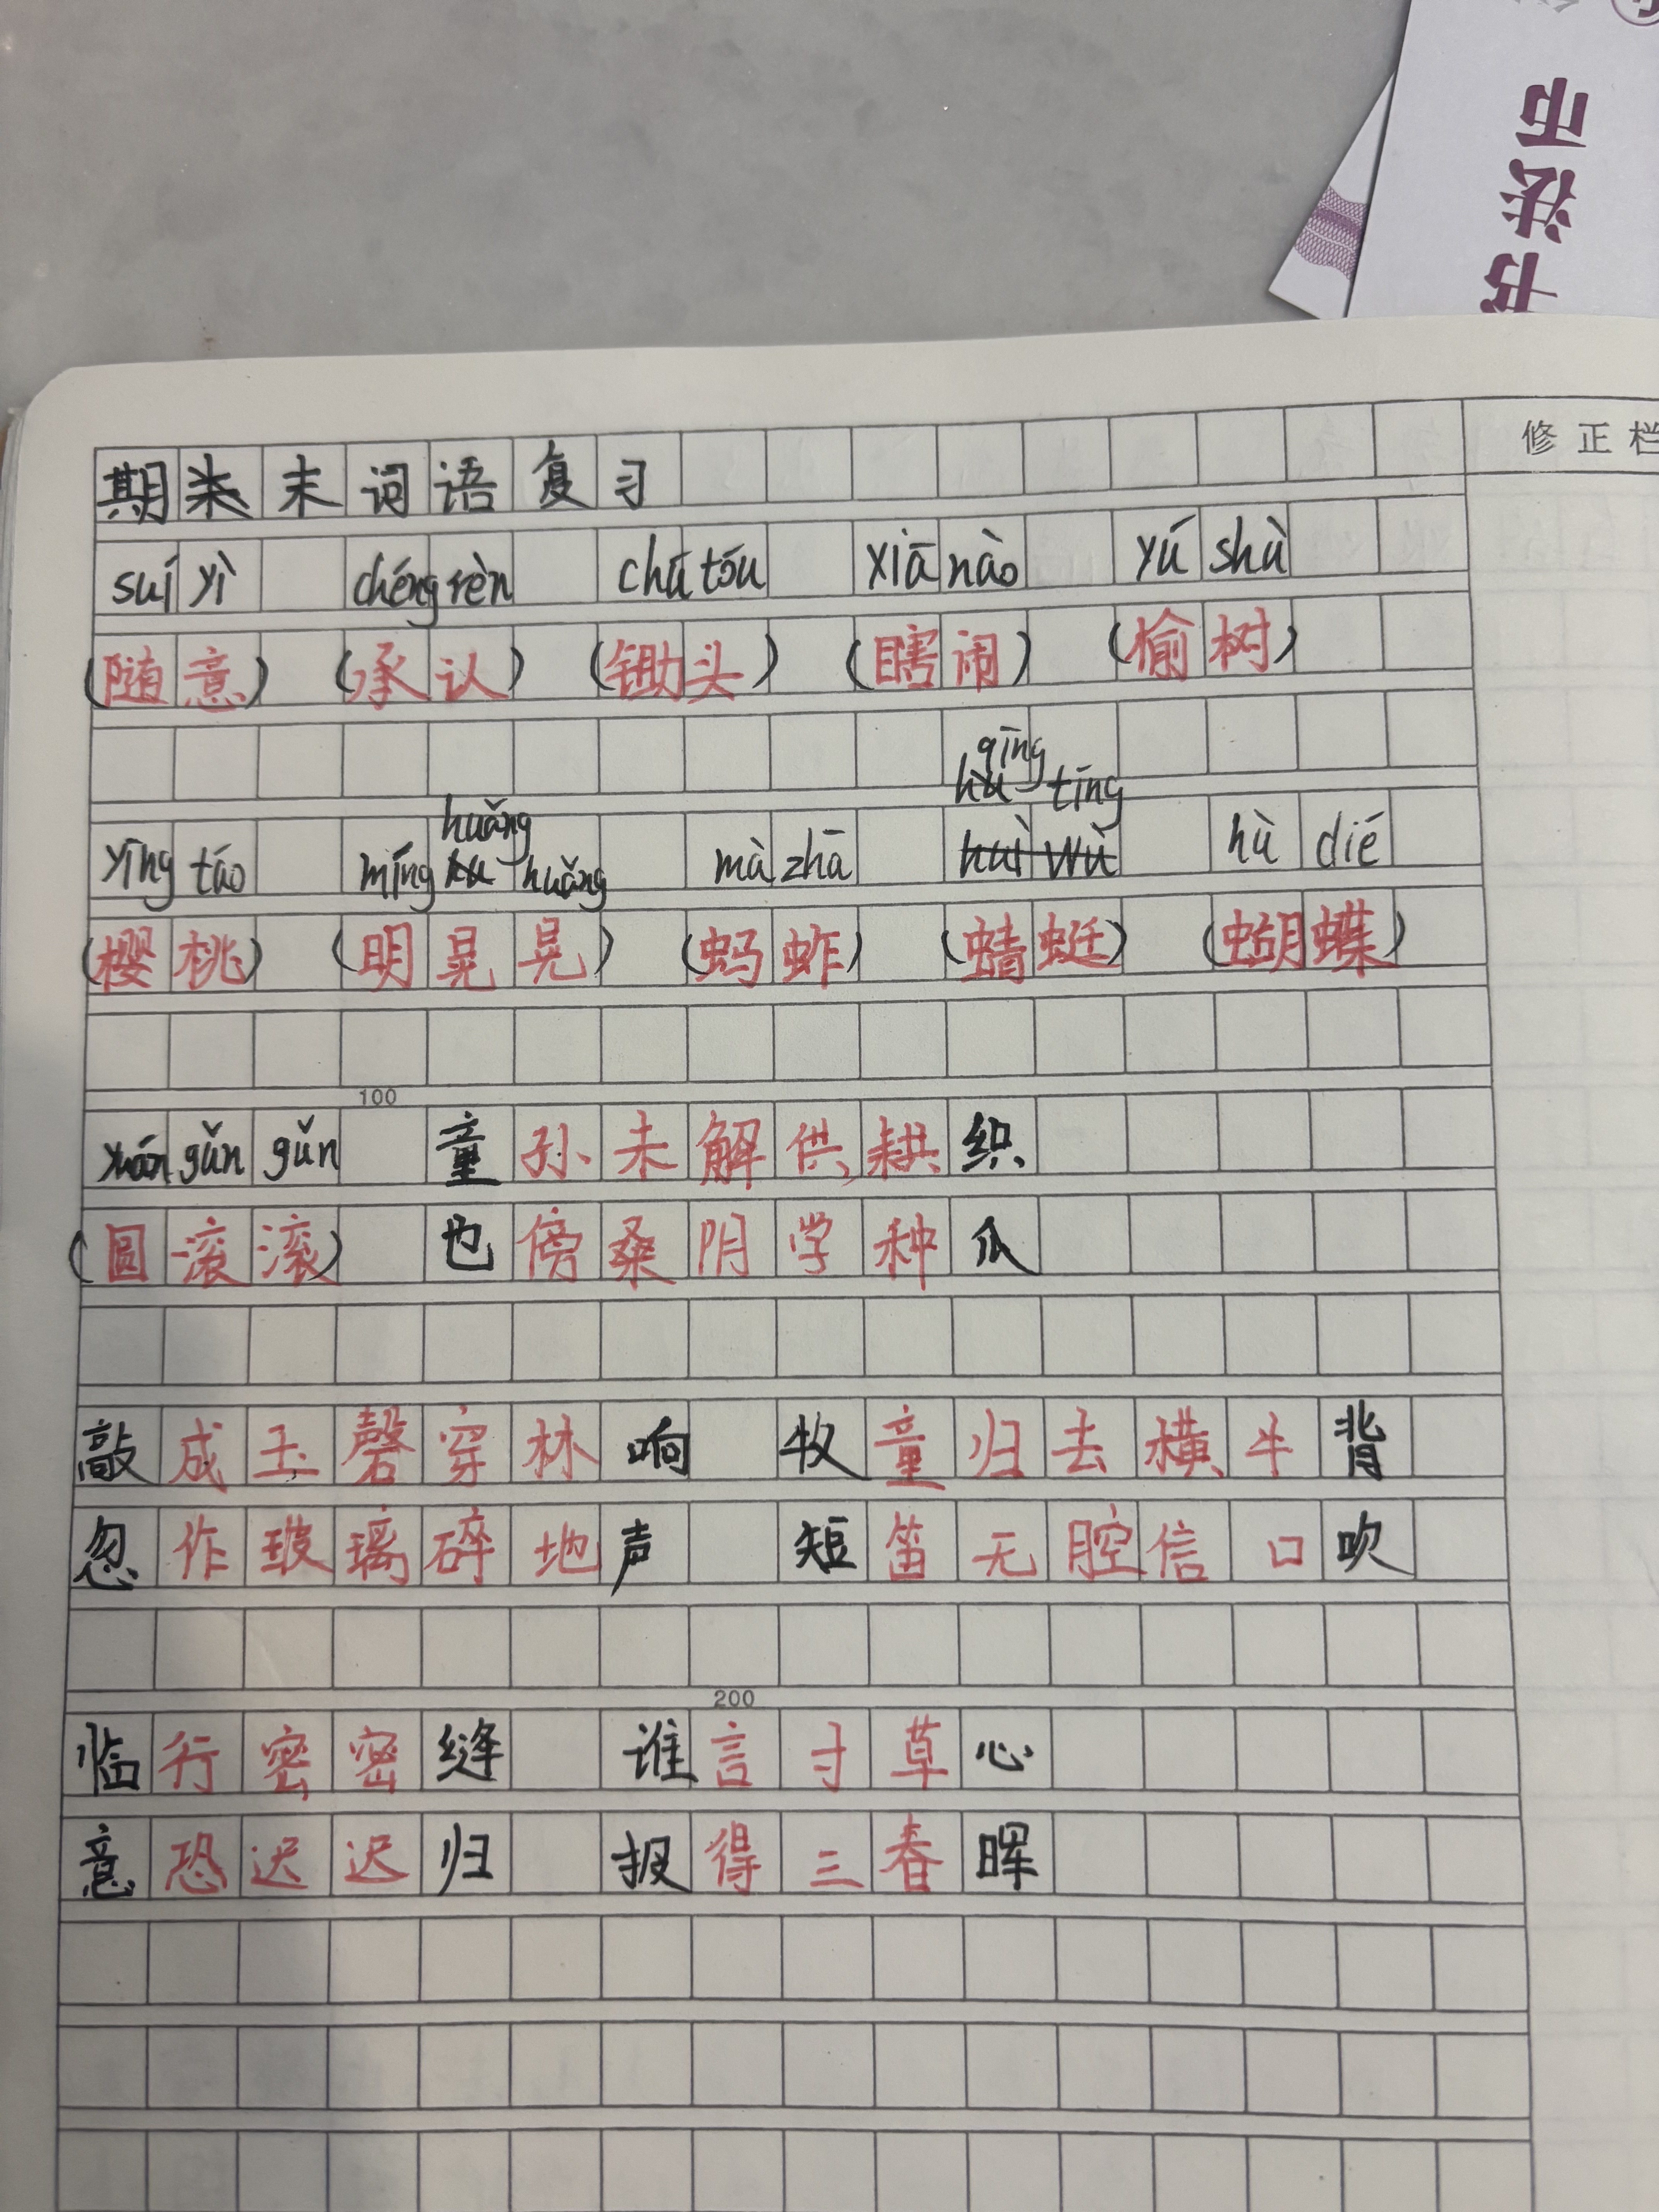 书法币
修正栏
期末词语复习
suí yì chéng rèn chú tóu xiā nào yú shù
(随意) (承认) (锄头) (瞎闹) (榆树)
qīng
hu tíng
huǎng
yīng táo míng huǎng mà zhā huì wù hú dié
(樱桃) (明晃晃) (蚂蚱) (蜻蜓) (蝴蝶)
100
yuán gǔn gǔn 童孙未解供耕织
(圆滚滚) 也傍桑阴学种瓜
敲成玉磬穿林响 牧童归去横牛背
忽作玻璃碎地声 短笛无腔信口吹
200
临行密密缝 谁言寸草心
意恐迟迟归 报得三春晖